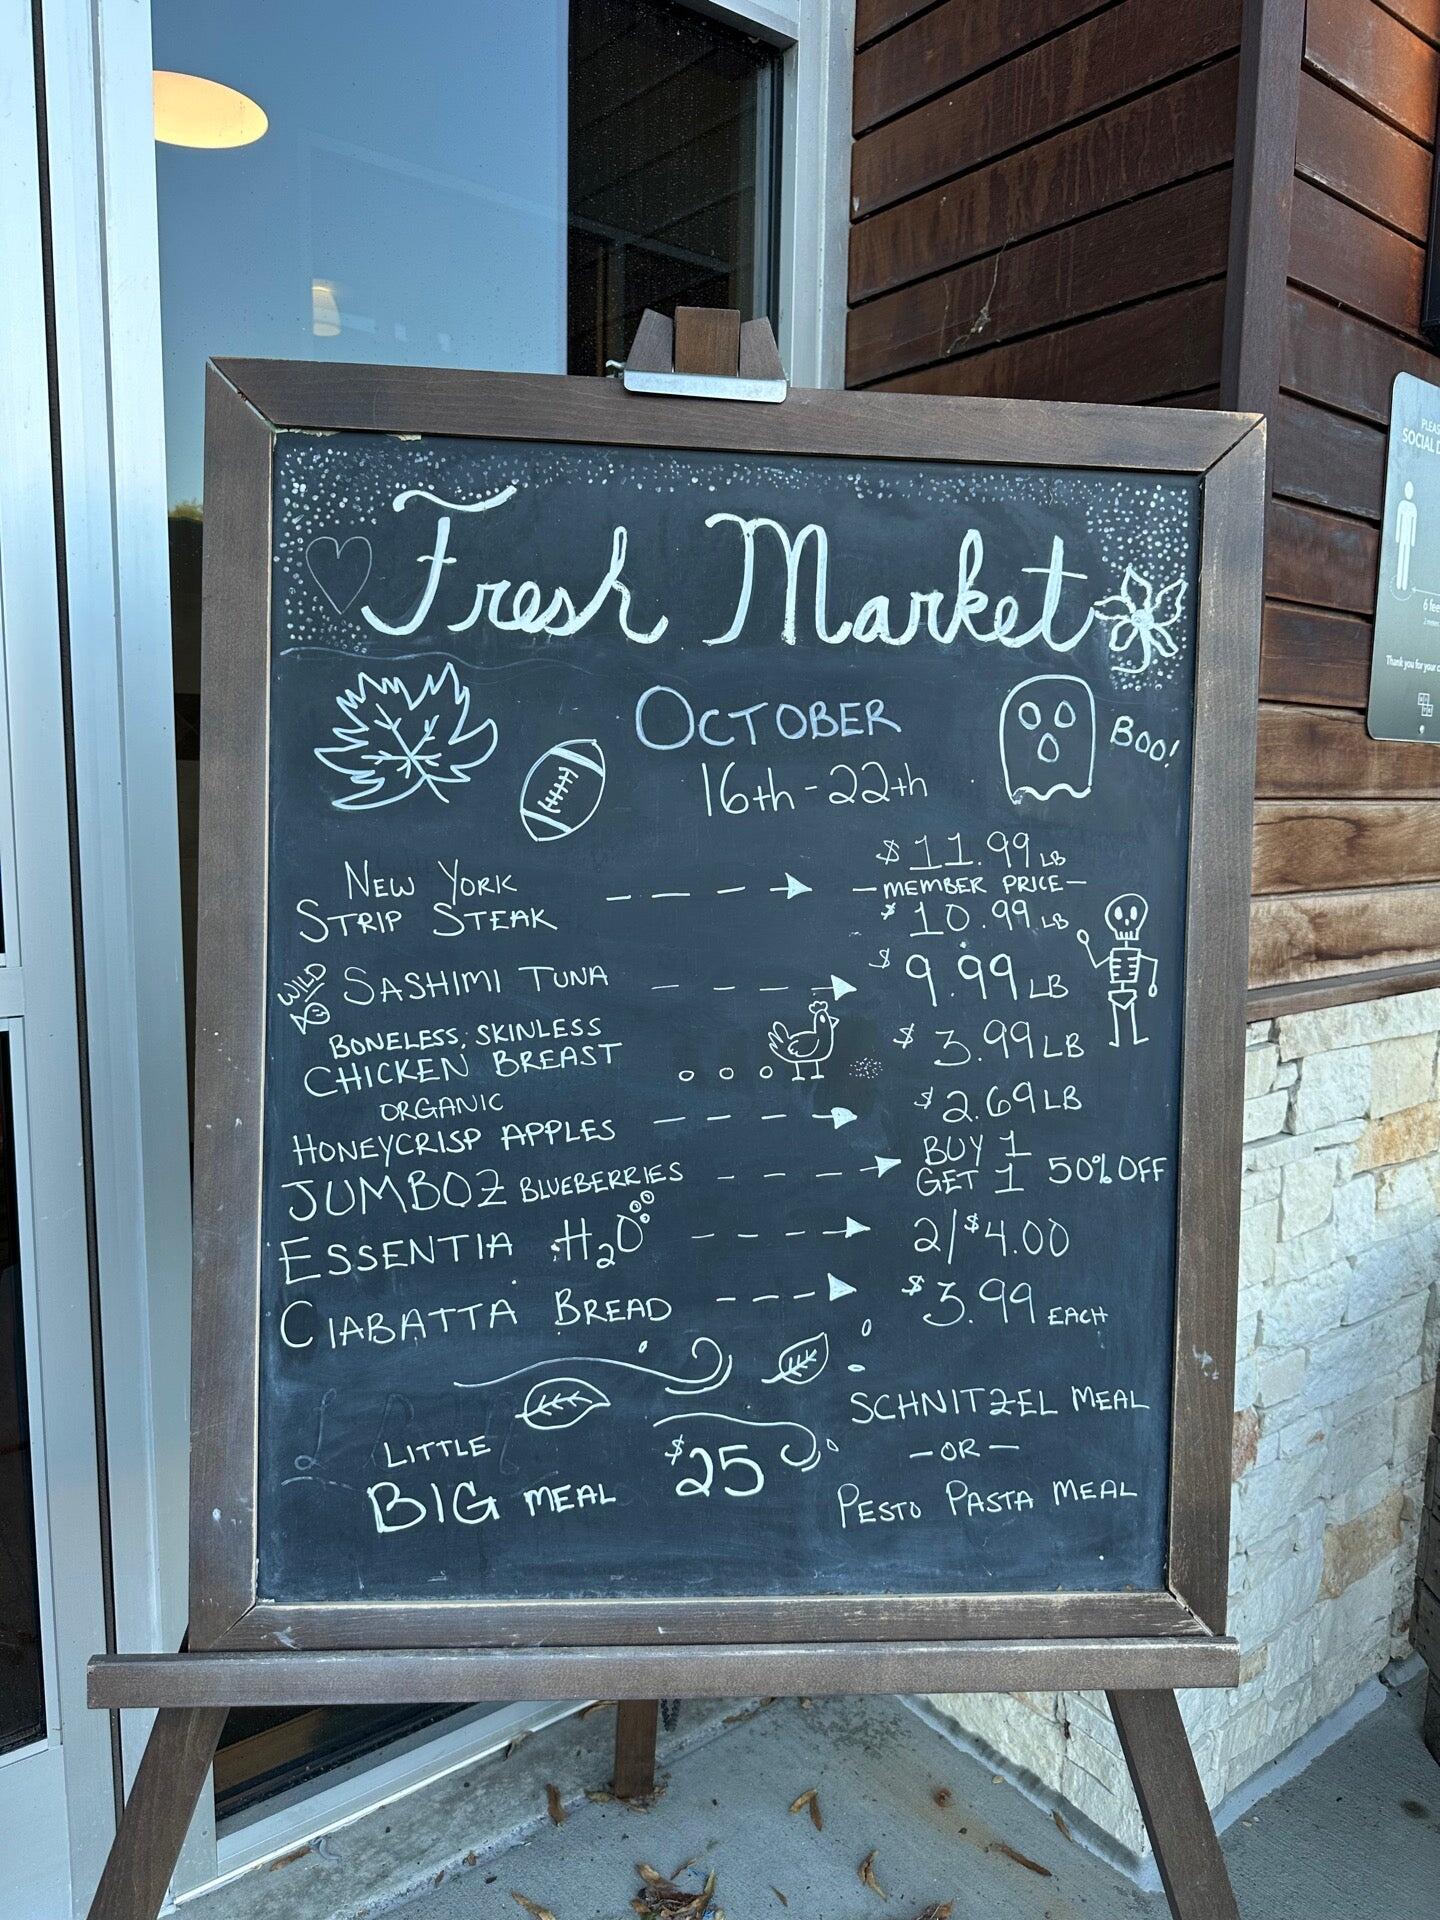 Fresh Market
OCTOBER
16th-22th
BOO!
NEW YORK
STRIP STEAK
$11.99 LB
-MEMBER PRICE-
$10.99 LB
WILD
SASHIMI TUNA
$9.99 LB
BONELESS, SKINLESS
CHICKEN BREAST
$3.99 LB
ORGANIC
HONEYCRISP APPLES
$2.69 LB
JUMBOZ BLUEBERRIES
BUY 1
GET 1 50% OFF
ESSENTIA H2O
2/$4.00
CIABATTA BREAD
$3.99 EACH
LITTLE
BIG MEAL
$25
SCHNITZEL MEAL
-OR-
PESTO PASTA MEAL
SOCIAL
6
Thank you for your